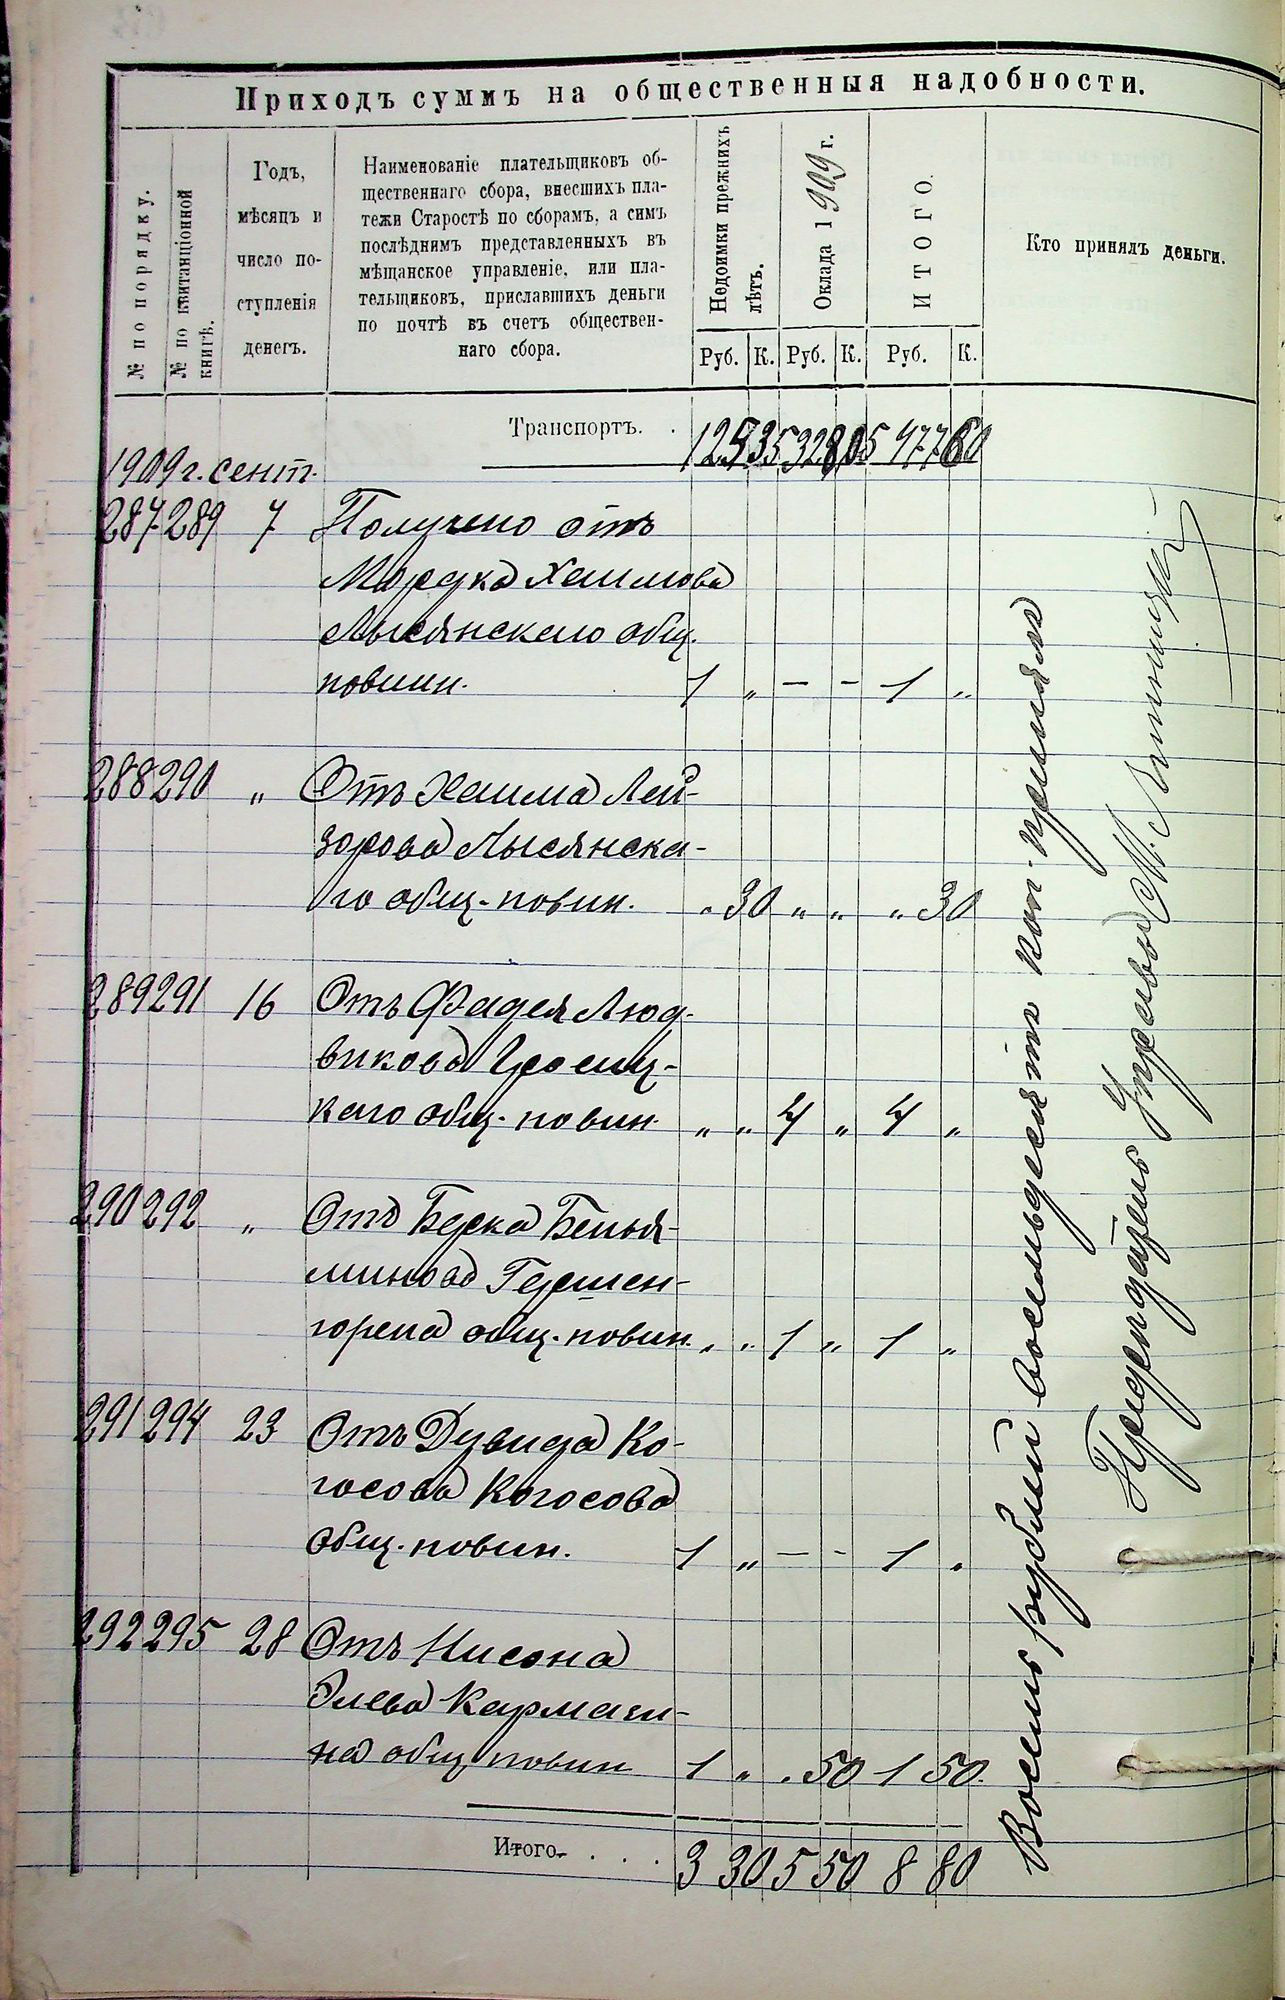 Приходъ суммъ на общественныя надобности.
№ по порядку.
№ по квитанціонной
книгѣ.
Годъ,
мѣсяцъ и
число по-
ступленія
денегъ.
Наименованіе плательщиковъ об-
щественнаго сбора, внесшихъ пла-
тежи Старостѣ по сборамъ, а симъ
послѣднимъ представленныхъ въ
мѣщанское управленіе, или пла-
тельщиковъ, приславшихъ деньги
по почтѣ въ счетъ обществен-
наго сбора.
Недоимки прежнихъ
лѣтъ.
Оклада 1909 г.
ИТОГО.
Кто принялъ деньги.
Руб. К. Руб. К. Руб. К.
Транспортъ. .
1909 г. сент.
287 289 7 Получено отъ
Мордка Хаимова
Лысянскаго общ.
повинн. 1 „ — — 1 „
288 290 „ Отъ Хаима Лей-
зорова Лысянска-
го общ. повин. „ 30 „ „ „ 30
289 291 16 Отъ Фадея Люд-
викова
каго общ. повин. „ „ 4 „ 4 „
290 292 „ Отъ Берка Бенья-
минова Гершен-
горена общ. повин. „ „ 1 „ 1 „
291 294 23 Отъ Дувида Ко-
госова Когосова
общ. повин. 1 „ — — 1 „
292 295 28 Отъ Нисона
Элева Кармази-
на общ. повин 1 „ „ 50 1 50
Итого. . . . 3 30 5 50 8 80
Восемь рублей восемьдесятъ коп. принялъ
Предсѣдатель Управы М.